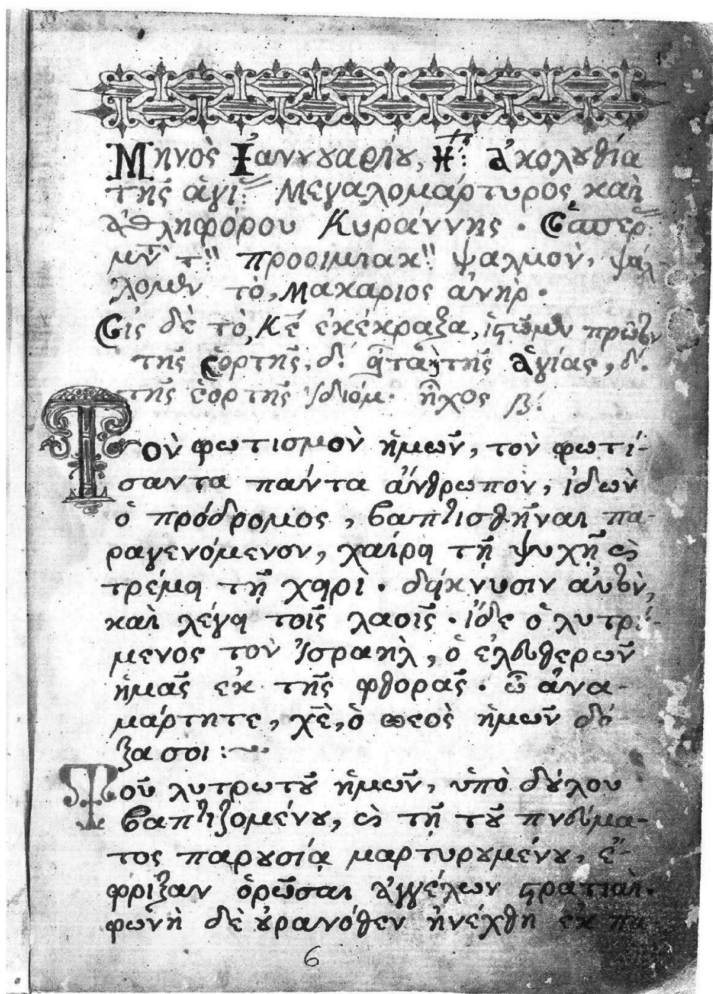 Μηνὸς Ἰαννουαρίου, Η: ἀκολουθία
τῆς ἁγί: Μεγαλομάρτυρος καὶ
ἀθληφόρου Κυράννης. Ἑσπερ
μὲν τ: προοιμιακ: ψαλμὸν, ψάλ-
λομεν τὸ, Μακάριος ἀνὴρ.
Εἰς δὲ τὸ, Κε ἐκέκραξα, ἱστῶμεν
τῆς ἑορτῆς, δ. τῆς Ἁγίας, δ.
τῆς ἑορτῆς ἰδιόμ. ἦχος β.
Τὸν φωτισμὸν ἡμῶν, τὸν φωτί-
σαντα πάντα ἄνθρωπον, ἰδὼν
ὁ πρόδρομος, βαπτισθῆναι πα-
ραγενόμενον, χαίρει τῇ ψυχῇ καὶ
τρέμει τῇ χειρί. δείκνυσιν αὐτὸν,
καὶ λέγει τοῖς λαοῖς. ἴδε ὁ λυτρ
μενος τὸν Ἰσραὴλ, ὁ ἐλευθερῶν
ἡμᾶς ἐκ τῆς φθορᾶς. ὦ ἀνα-
μάρτητε, χε, ὁ θεὸς ἡμῶν δό-
ξα σοι:~
Τοῦ λυτρωτοῦ ἡμῶν, ὑπὸ δούλου
βαπτιζομένου, καὶ τῇ τοῦ πνεύμα-
τος παρουσίᾳ μαρτυρουμένου, ἔ-
φριξαν ὁρῶσαι ἀγγέλων στρατιαὶ.
φωνὴ δὲ οὐρανόθεν ἠνέχθη ἐκ πα
6